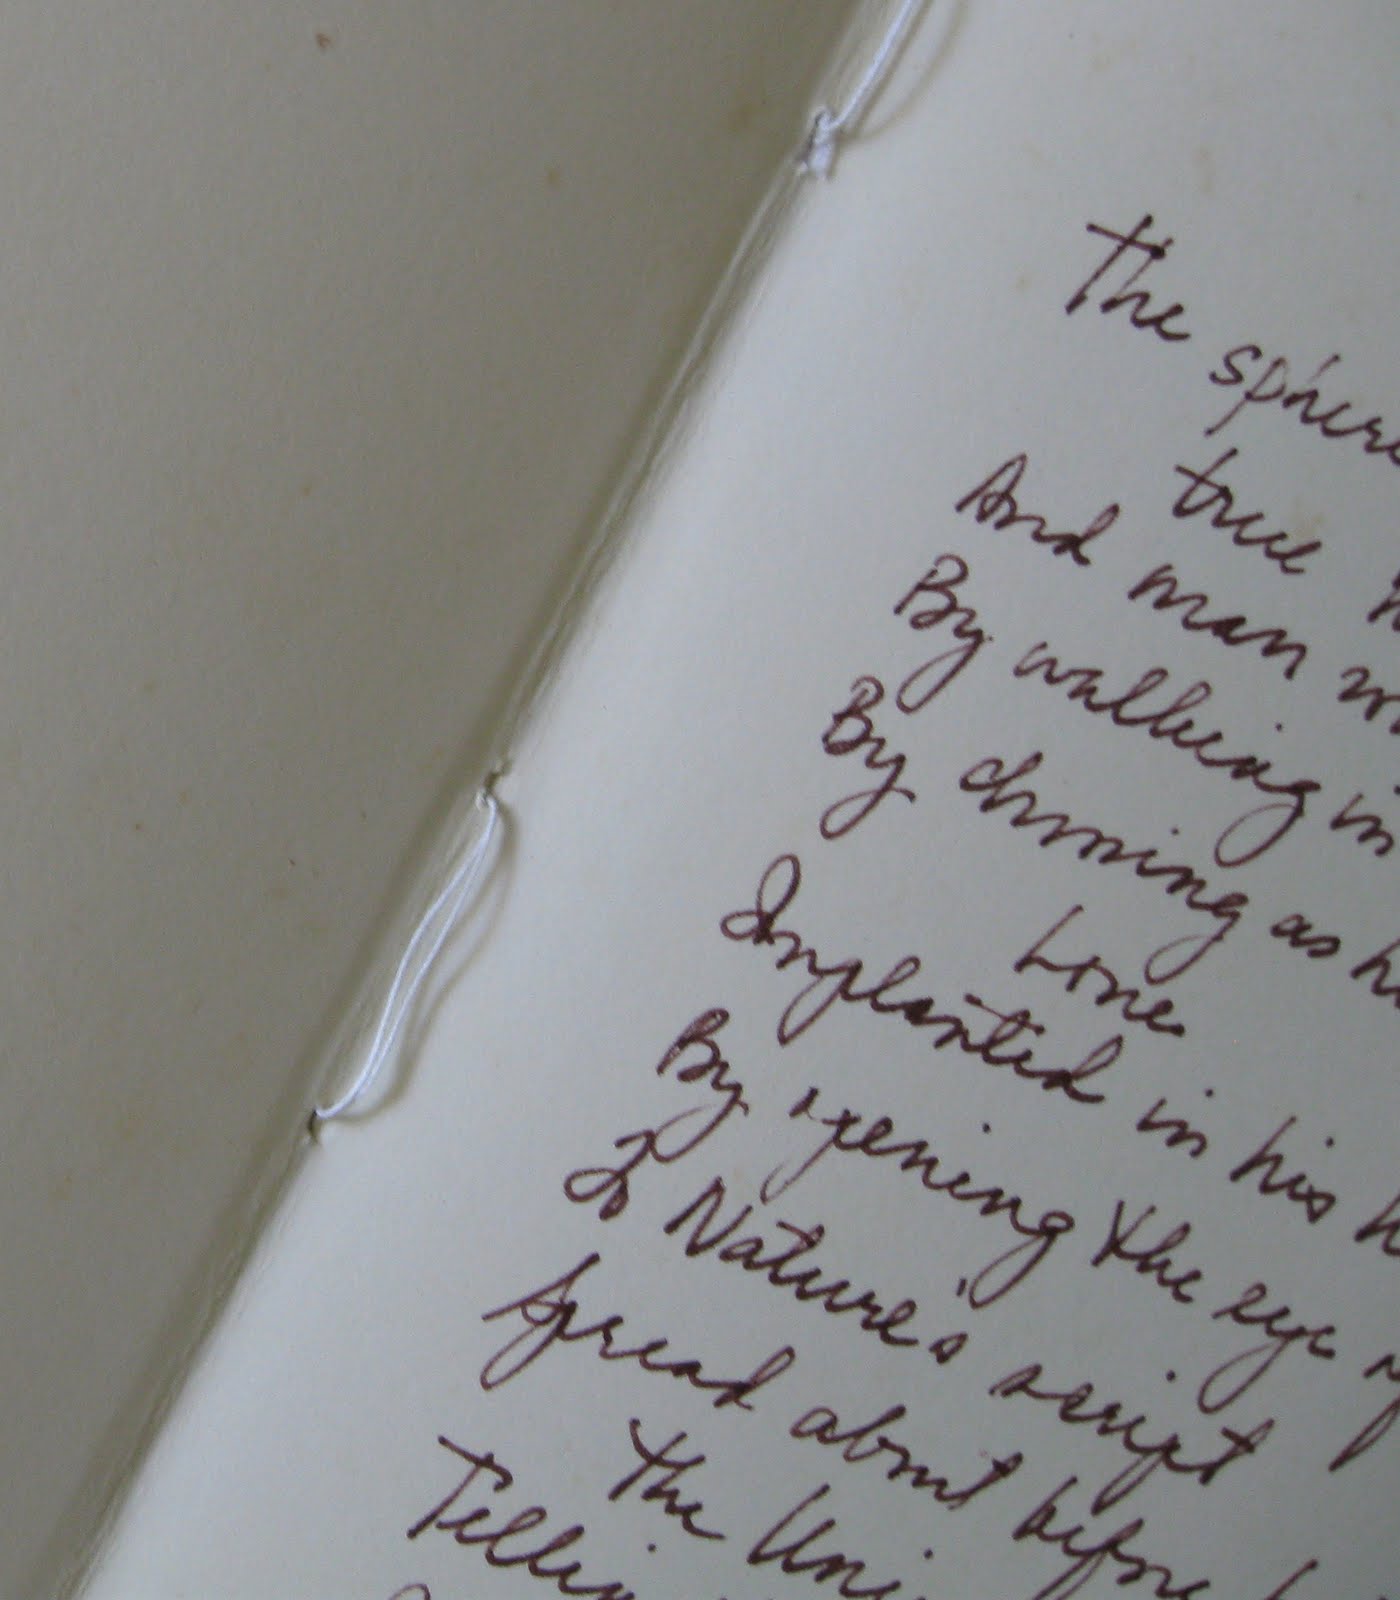 The sphere
true
And man
By walking in
By chiming as
tone
Implanted in his
By opening the eye
To Nature's script
Spread about before
the Uni
Tellin